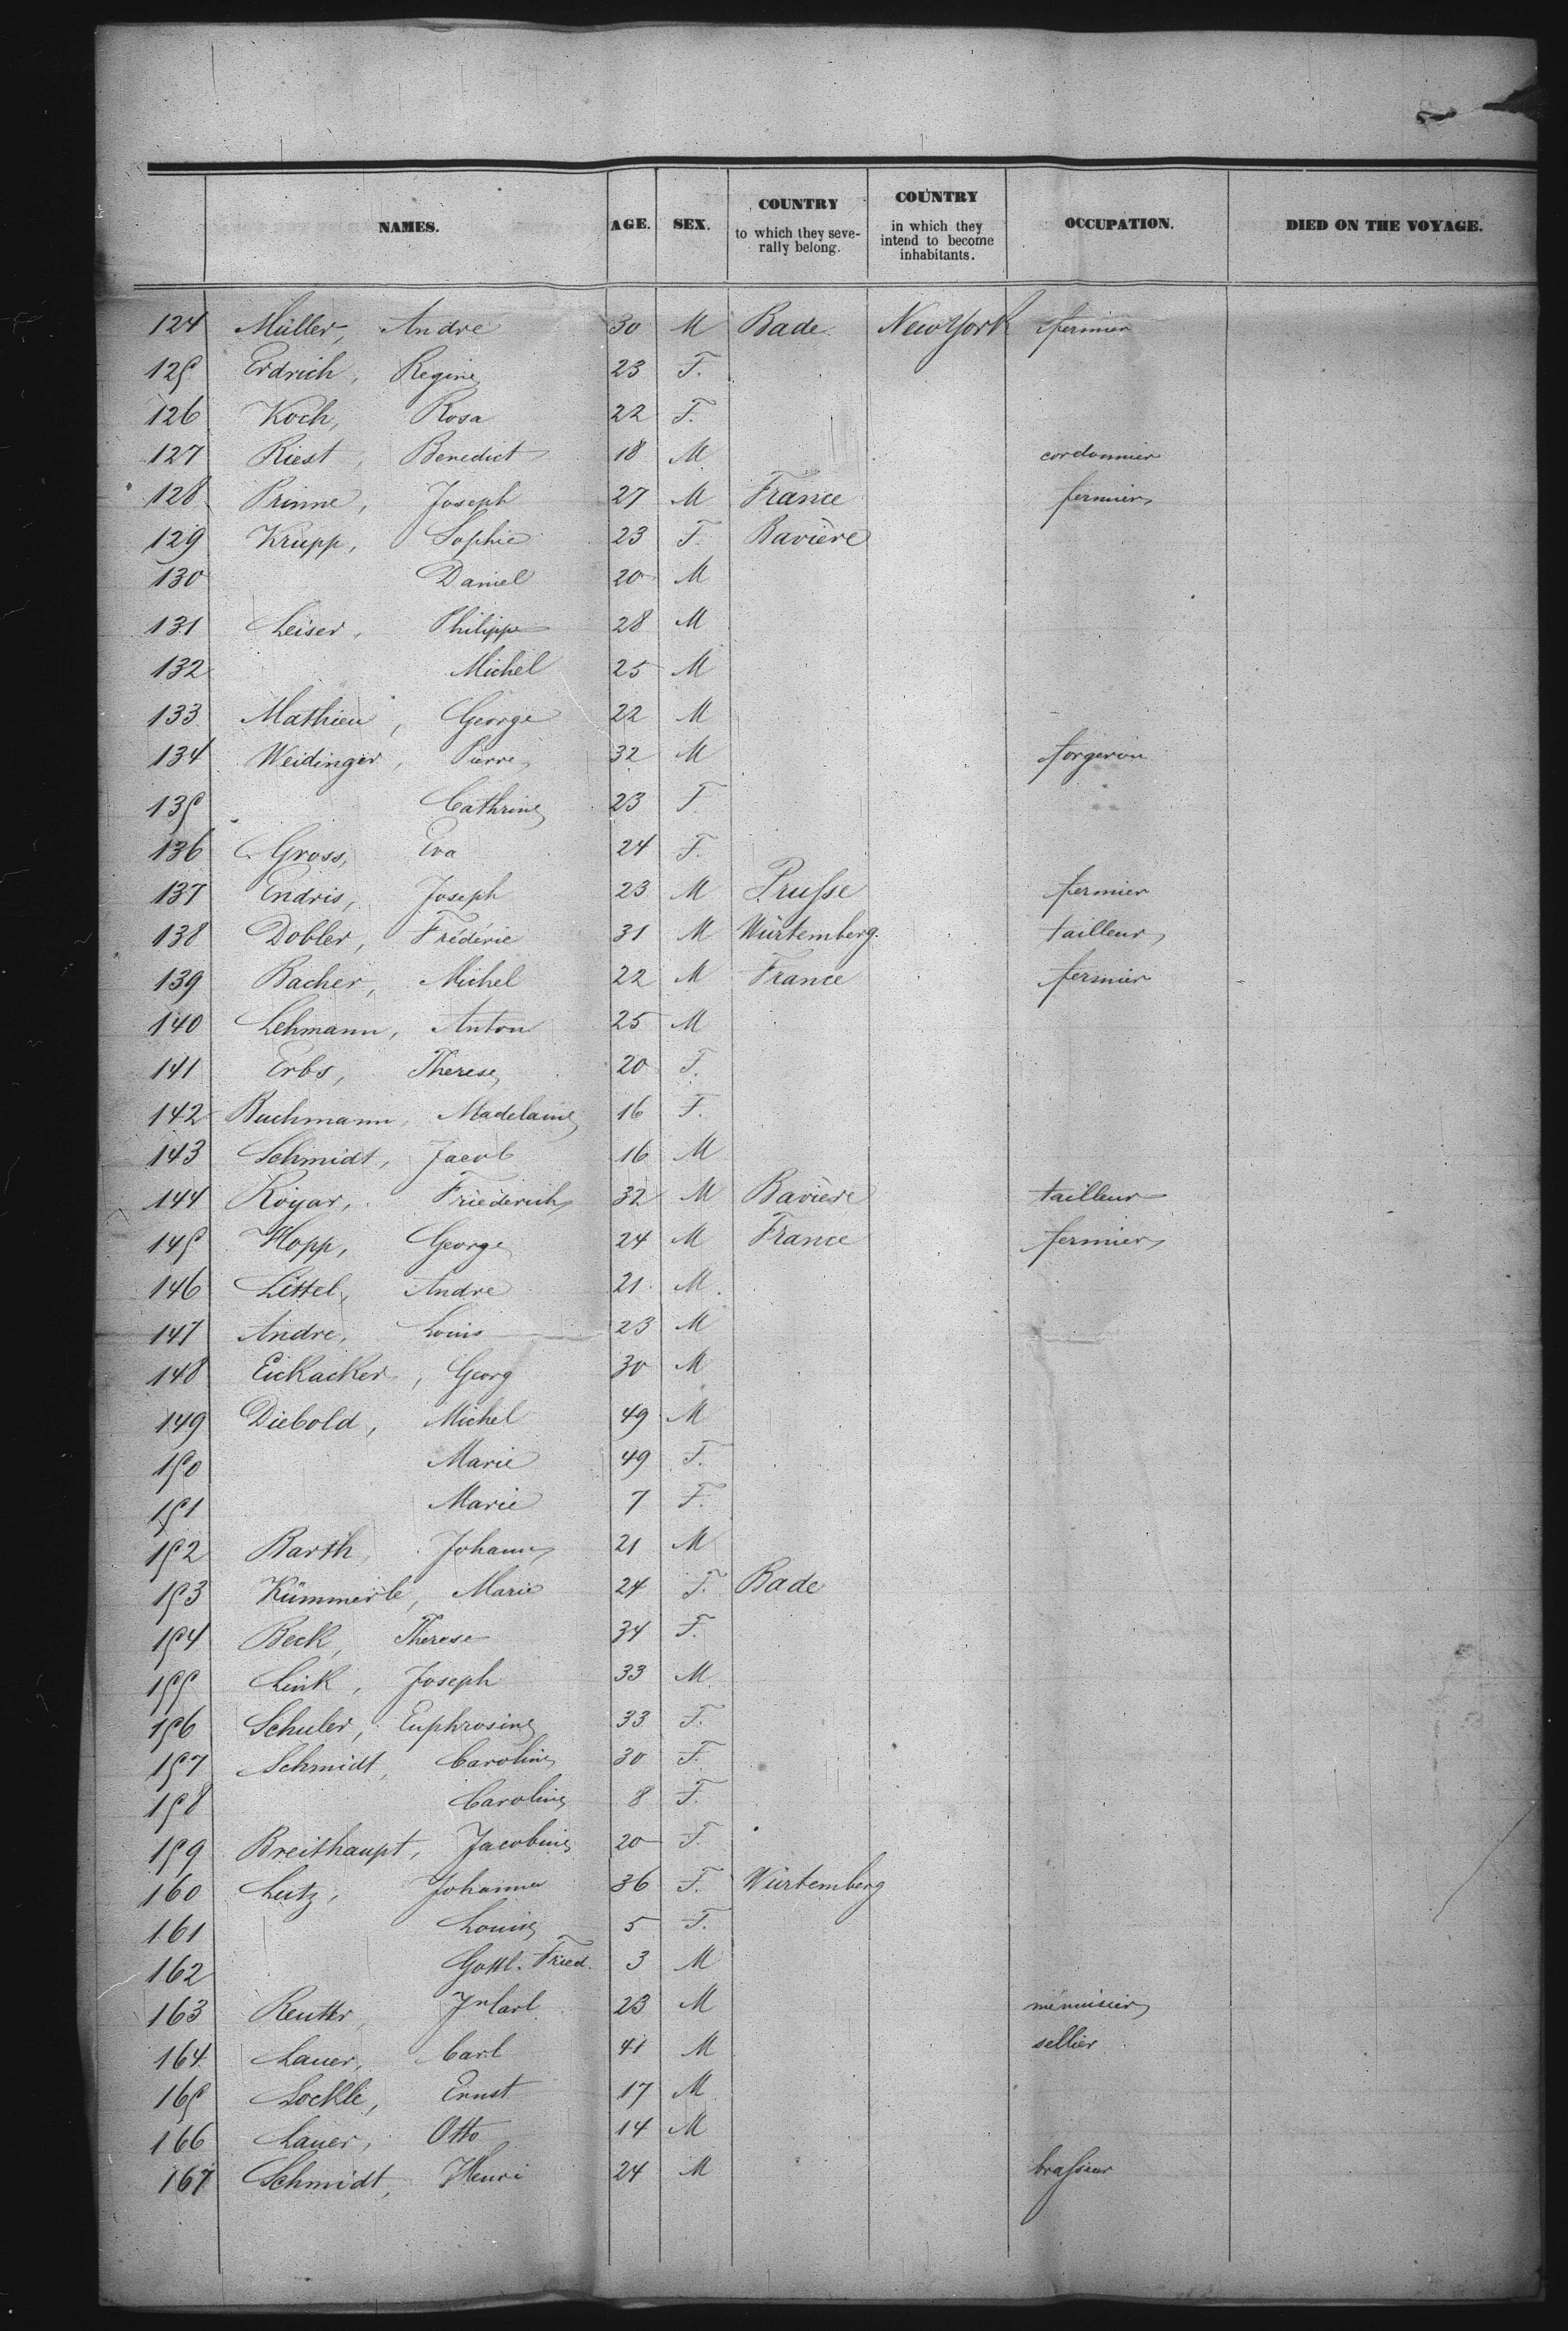 NAMES. AGE. SEX. COUNTRY to which they severally belong. COUNTRY in which they intend to become inhabitants. OCCUPATION. DIED ON THE VOYAGE.
124 Müller, Andre 30 M Bade. New York fermier
125 Erdrich, Regine 23 F.
126 Koch, Rosa 22 F.
127 Riest, Benedict 18 M cordonnier
128 Prinne, Joseph 27 M France fermier
129 Krupp, Sophie 23 F. Bavière
130 Daniel 20 M
131 Leiser, Philippe 28 M
132 Michel 25 M
133 Mathieu, George 22 M
134 Weidinger, Pierre 32 M forgeron
135 Cathrine 23 F
136 Gross, Eva 24 F.
137 Endris, Joseph 23 M Prusse fermier
138 Dobler, Fréderic 31 M Würtemberg. tailleur
139 Bacher, Michel 22 M France fermier
140 Lehmann, Anton 25 M
141 Erbs, Therese 20 F.
142 Buchmann, Madelaine 16 F.
143 Schmidt, Jacob 16 M
144 Royar, Friederich 32 M Bavière tailleur
145 Hopp, George 24 M France fermier
146 Littel, Andre 21 M.
147 Andre, Louis 23 M
148 Eickacker, Georg 30 M
149 Diebold, Michel 49 M
150 Marie 49 F.
151 Marie 7 F.
152 Barth, Johann 21 M
153 Kümmerle, Marie 24 F. Bade
154 Beck, Therese 34 F.
155 Link, Joseph 33 M
156 Schuler, Euphrosine 33 F.
157 Schmidt, Caroline 30 F.
158 Caroline 8 F.
159 Breithaupt, Jacobine 20 F.
160 Lutz, Johanna 36 F. Würtemberg
161 Louise 5 F.
162 Gottl. Fried. 3 M
163 Reutter, Jn Carl 23 M menuisier
164 Lauer, Carl 41 M sellier
165 Lockle, Ernst 17 M
166 Lauer, Otto 14 M
167 Schmidt, Henri 24 M brasseur